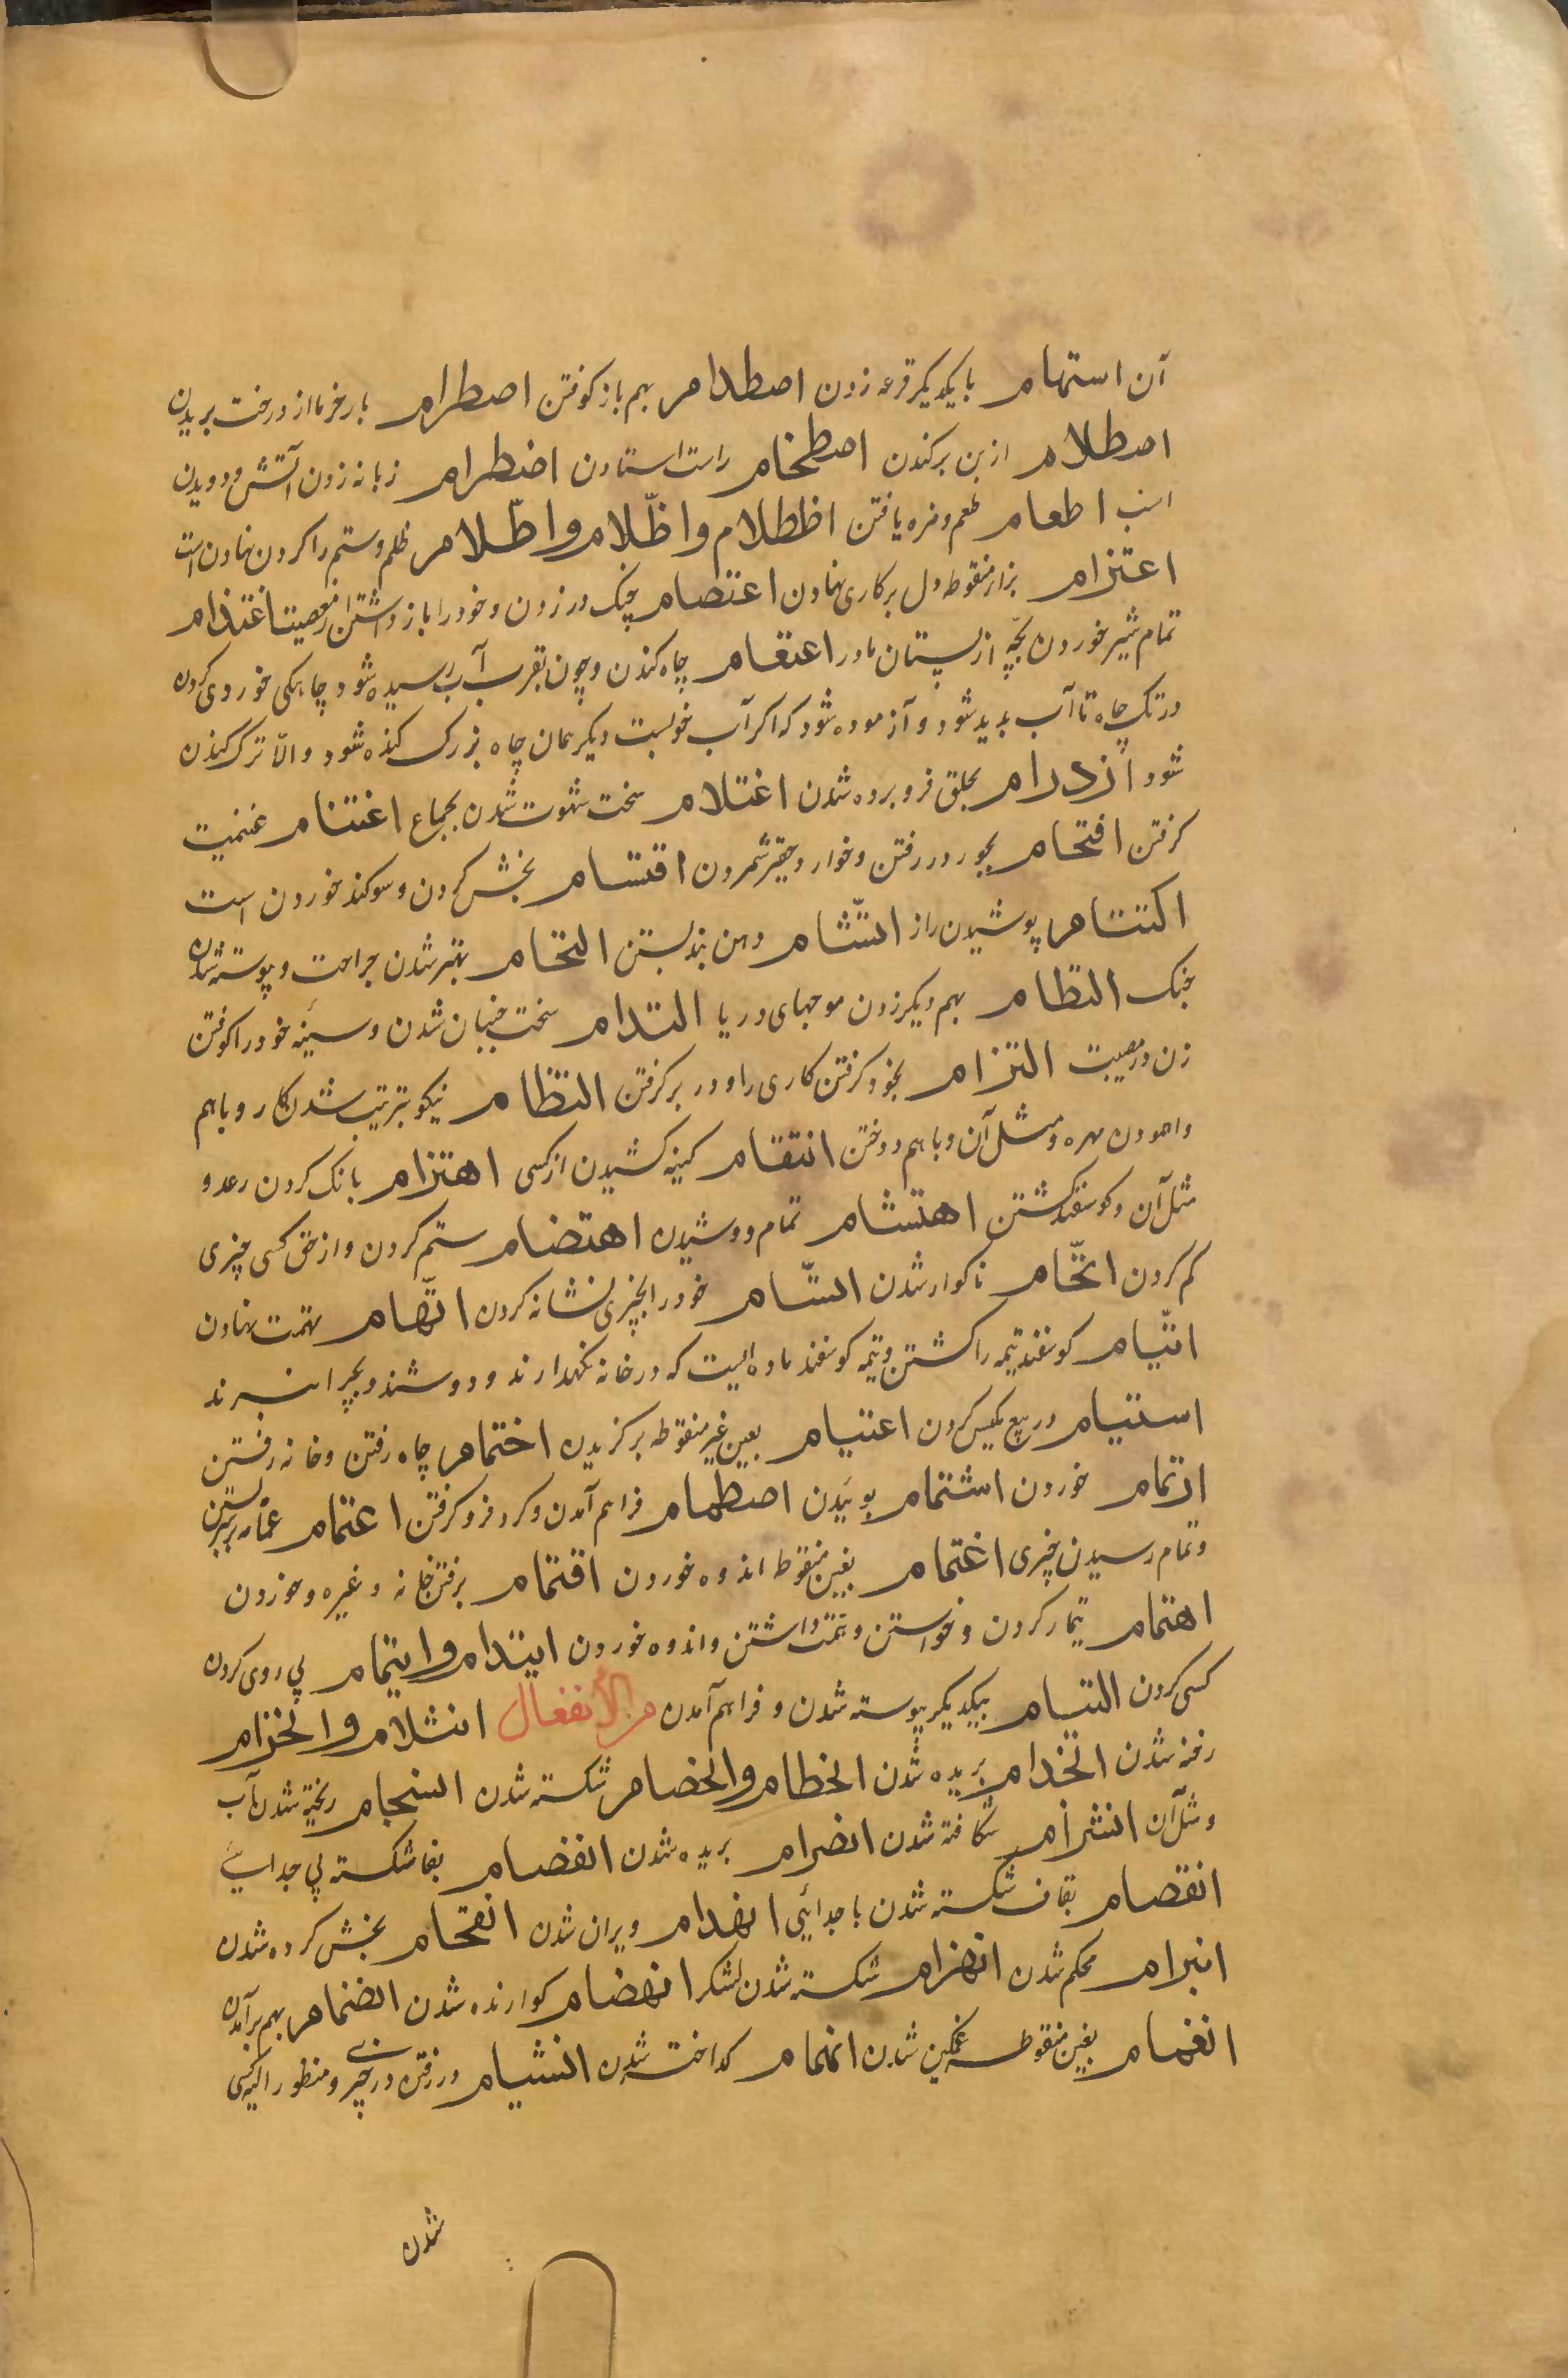 آن استهام با یکدیگر قرعه زدن اصطدام بهم باز کوفتن اصطرام بار خرما از درخت بریدن
اصطلام از بن برکندن اصطخام راست استادن اضطرام زبانه زدن آتش و دویدن
اسب اطعام طعم و مزه یافتن اظطلام و اظّلام و اطّلام ظلم و ستم را کردن نهادن است
اعتزام بزاء منقوطه دل بر کاری نهادن اعتصام چنک در زدن و خود را باز داشتن از معصیت اغتذام
تمام شیر خوردن بچّه از پستان مادر اعتقام چاه کندن و چون بقرب آب رسیده شود چاهکی خورد وی کردن
در تک چاه تا آب بدید شود و آزموده شود که اکر آب خوبست دیکر همان چاه بزرک کنده شود و الّا ترک کندن
شود ازدرام بحلق فرو برده شدن اغتلام سخت شهوت شدن بجماع اغتنام غنیمت
کرفتن اقتحام بجور در رفتن و خوار و حقیر شمردن اقتسام بخش کردن و سوکند خوردن است
اکتتام پوشیدن راز التثام دهن بند بستن التحام بهتر شدن جراحت و پیوسته شدن
جنک التطام بهم دیکر زدن موجهای دریا التدام سخت جنبان شدن و سینه خود را کوفتن
زن در مصیبت التزام بخود کرفتن کاری را و در بر کرفتن انتظام نیکو بترتیب شدن کار و باهم
مهره و مثل آن و با هم دوختن انتقام کینه کشیدن از کسی اهتزام بانک کردن رعد و
مثل آن و کوسفند کشتن اهتشام تمام دوشیدن اهتضام ستم کردن و از حق کسی چیزی
کم کردن اتّخام ناکوار شدن اتّسام خود را بچیزی نشانه کردن اتّهام تهمت نهادن
اتّیام کوسفند تیمه را کشتن و تیمه کوسفند ماده ایست که در خانه نکهدارند و دوشند و بچرا نبرند
استیام در بیع مکیس کردن اعتیام بعین غیر منقوطه برکزیدن اختمام چاه رفتن و خانه رفتن
ارتمام خوردن اشتمام بوئیدن اصطمام فراهم آمدن و کرد فرو کرفتن اعتمام عمّامه بر سر بستن
و تمام رسیدن چیزی اغتمام بغین منقوط اندوه خوردن اقتمام برفتن خانه و غیره و خوردن
اهتمام تیمار کردن و خواستن و همّت داشتن و اندوه خوردن ایتدام و ایتمام پی روی کردن
کسی کردن التیام بیکدیکر پیوسته شدن و فراهم آمدن من الأنفعال انثلام و انخزام
رفنه شدن انخدام بریده شدن انحطام و انحضام شکسته شدن انسجام ریخته شدن آب
و مثل آن انشرام شکافته شدن انصرام بریده شدن انفصام بفا شکسته بی جدایی
انقصام بقاف شکسته شدن با جدائیی انهدام ویران شدن انقحام بخش کرده شدن
انبرام محکم شدن انهزام شکسته شدن لشکر انهضام کوارنده شدن انضمام بهم برآمدن
انغمام بغین منقوطه غمکین شدن انهمام کداخته شدن انشیام در رفتن در چیزی و منظور
شدن